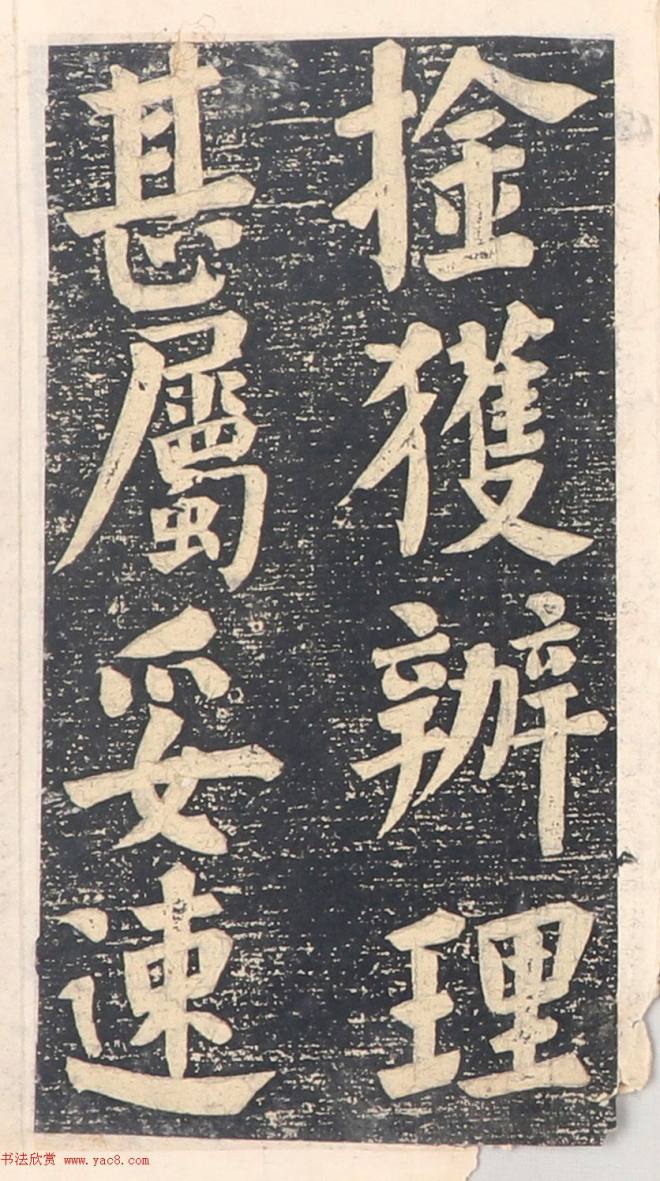 捦獲辦理
甚屬妥速
书法欣赏 www.yac8.com